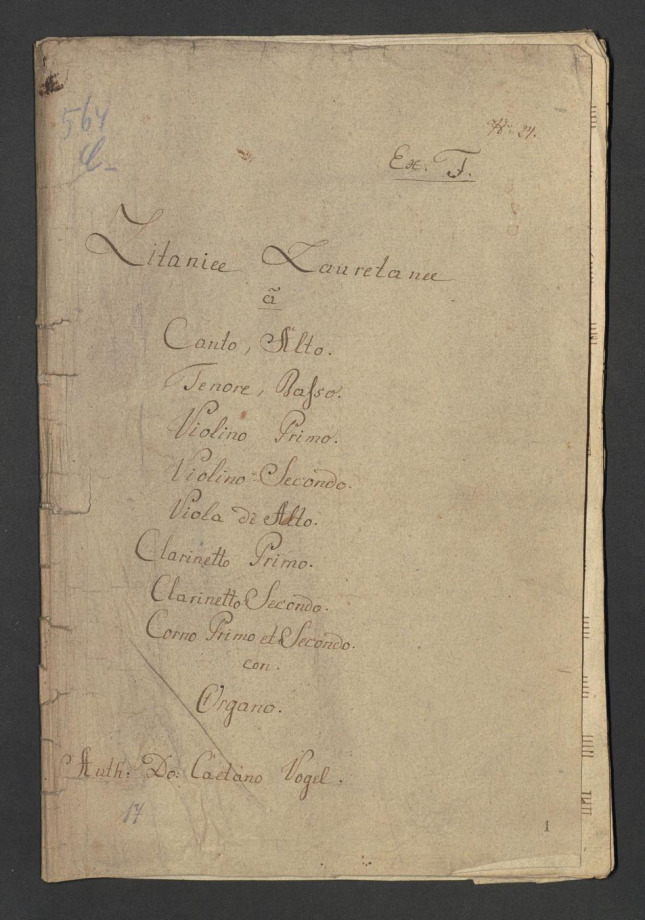 564
24.
Ex. F.
Litaniee Lauretanee
ã
Canto, Alto.
Tenore, Baſso.
Violino Primo.
Violino Secondo.
Viola di Alto.
Clarinetto Primo.
Clarinetto Secondo.
Corno Primo et Secondo.
con.
Organo.
Auth: Do: Caetano Vogel.
17
1